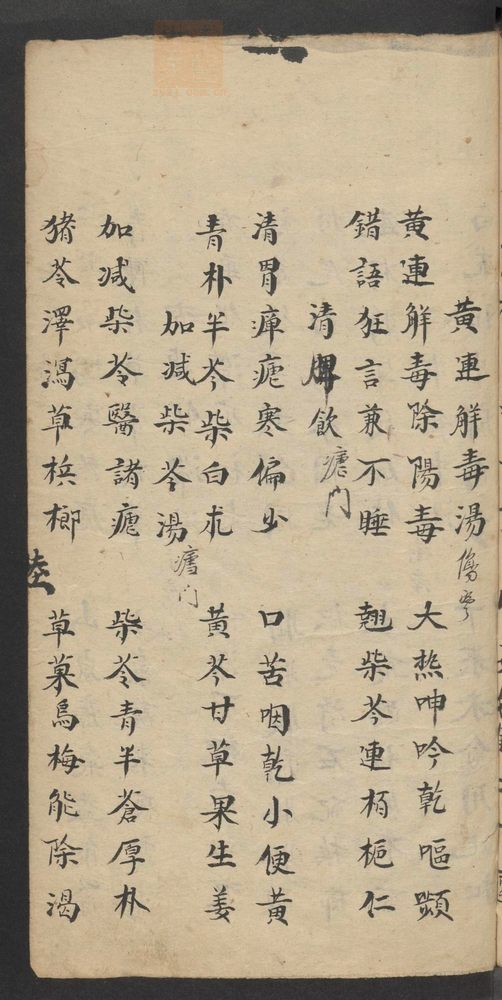 黄連解毒湯 傷寒
黄連解毒除陽毒 大热呻吟乾嘔顕
錯語狂言兼不睡 翘柴芩連栢梔仁
清脾飲 瘧门
清胃痺瘧寒偏少 口苦咽乾小便黄
青朴半芩柴白朮 黄芩甘草果生姜
加减柴苓湯 瘧门
加减柴苓醫諸瘧 柴苓青半蒼厚朴
猪苓澤瀉草梹榔 草菓烏梅能除渴